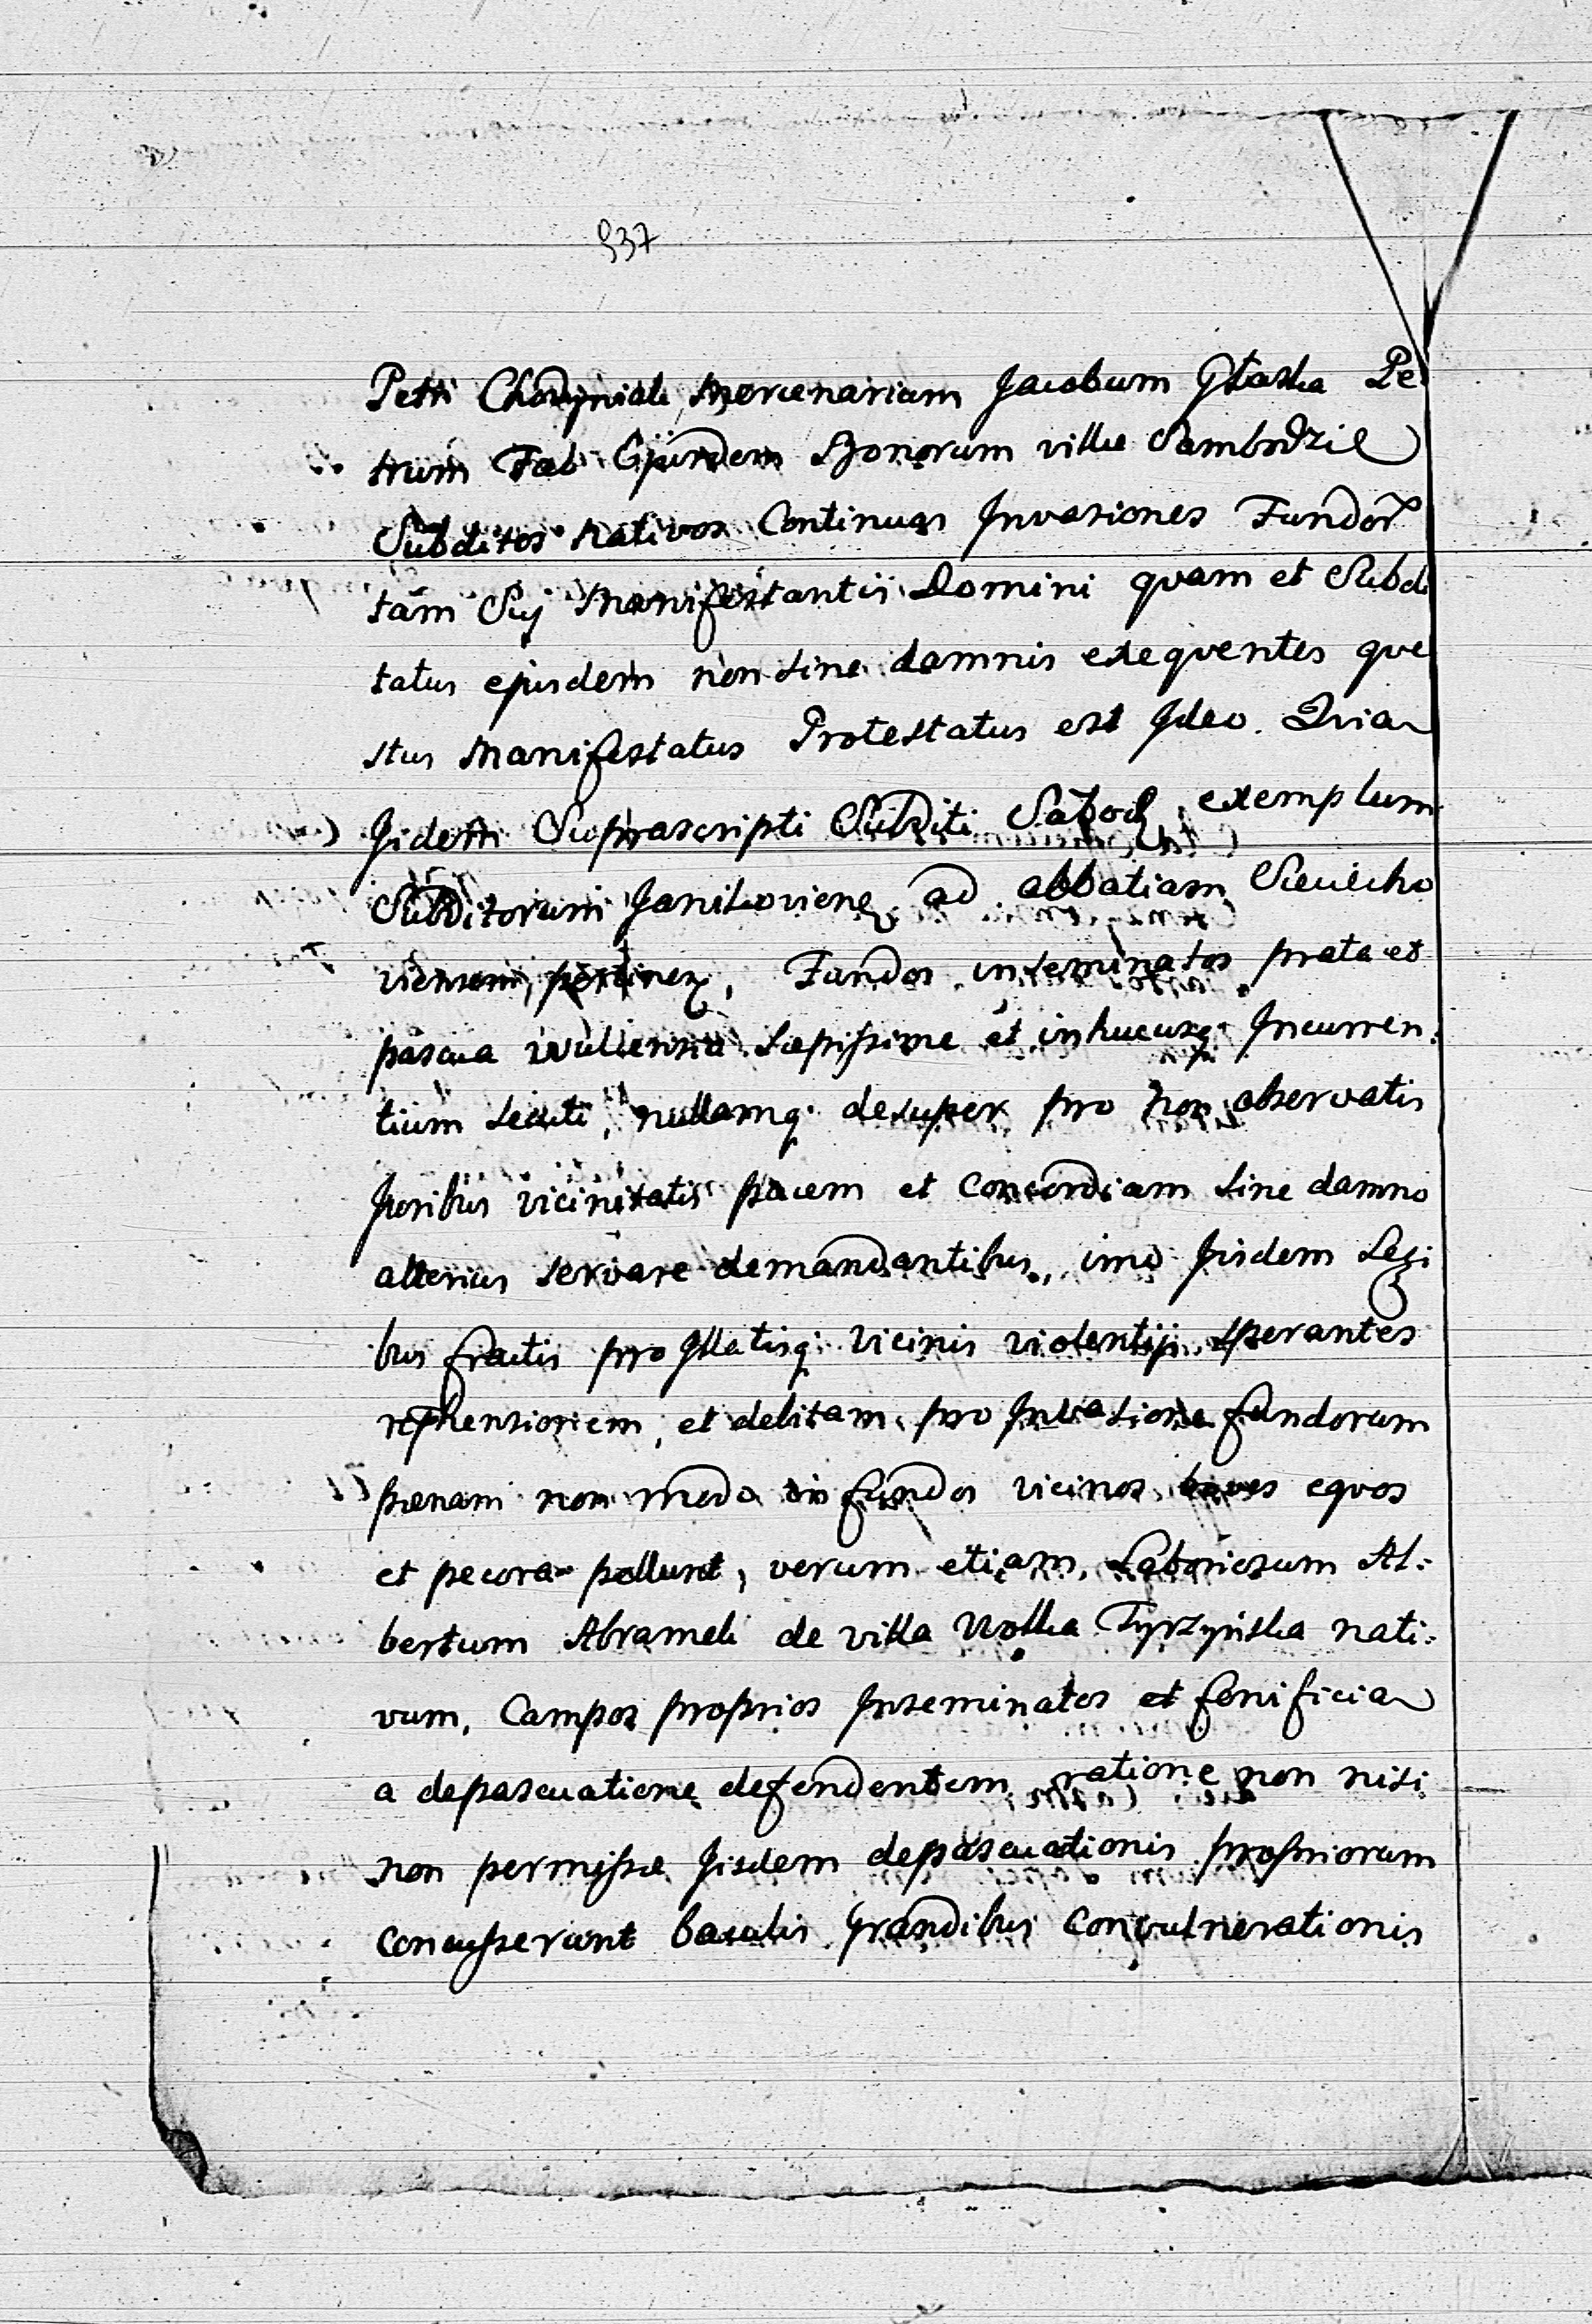 937
Petri Chodyniak Mercenarium Jacobum Głaska Pe
trum Fab Ejusdem Bonorum villæ Sambodzie
Subditos nativos Continuas Invasiones Fundor
tam Sui Manifestantis Domini qvam et Subdi
tatus ejusdem non sine damnis exeqventes que
stus Manifestatus Protestatus est Ideo. Qvia
Iidem Suprascripti Subditi exemplum
Subditorum ad abbatiam Sieciecho
viensem pertinen, Fundos inseminatos prata et
pascua sæpissime et inhucusq. Incurren:
tium secuti, nullamq. desuper pro non observatis
Juribus vicinitatis pacem et Concordiam sine damno
alterius servare demandantibus, imo Iisdem Legi
bus fractis pro Illatisq. Vicinis violentijs sperantes
rephensionem, et debitam pro Invasione fundorum
pœnam non modo in fundos vicinos boves eqvos
et pecora pellunt, verum etiam, Laboriosum Al:
bertum Abramek de villa Wolka Tyrzyńska nati:
vum, Campos proprios Inseminatos et fenificia
a depascuatione defendentem ratione non nisi
non permissæ Iisdem depascuationis propriorum
concusserunt baculis grandibus Convulnerationis